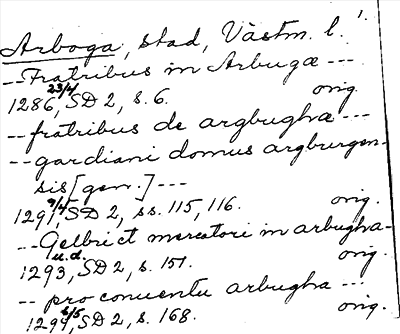 Arboga, stad, Västm. l. 1.
--Fratribus in Arbugæ ---
1286 23/4, SD 2, s. 6. orig.
-- fratribus de argbughæ ---
-- gardiani domus argburgen-
sis [gen.] ---
1291 9/4, SD 2, ss. 115, 116. orig.
-- Gelbrict mercatori in arbugha-
1293 u.d., SD 2, s. 151. orig.
-- pro conuentu arbugha ---
1294 6/5, SD 2, s. 168. orig.